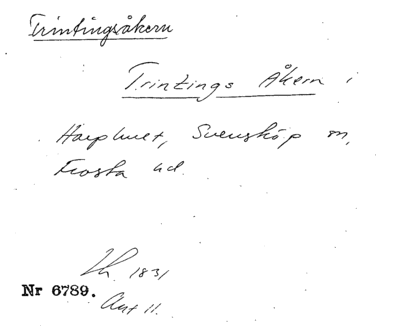 Trintingsåkern
Trintings Åkern i
Harphult, Svensköp sn,
Frosta hd.
1831
Nr 6789.
Akt 11.